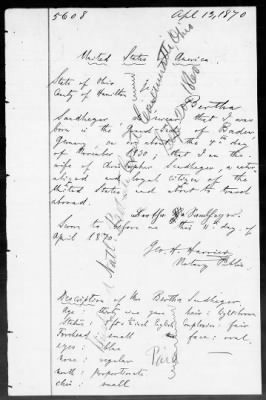 5608
Apl 13, 1870
United States America.
State of Ohio
County of Hamilton
Bertha
Sandheger, do swear that I was
born in the Grand of Baden
Germany, on or about the 7th day
of November 1830; that I am the
wife of Christopher Sandheger, a natur-
alized and loyal citizen of the
United States, and about to travel
abroad.
Sworn to before me this 11. day of
April 1870.
Geo. H.
Notary Public
Description of Mrs Bertha Sandheger.
Age: thirty nine years
hair: light brown
Stature: 5 ft. inch English
Complexion: fair
Forehead: small
face: oval.
eyes: blue
nose: regular
mouth: proportionate
chin: small
Paid
Natl. Bank
Cincinnati Ohio